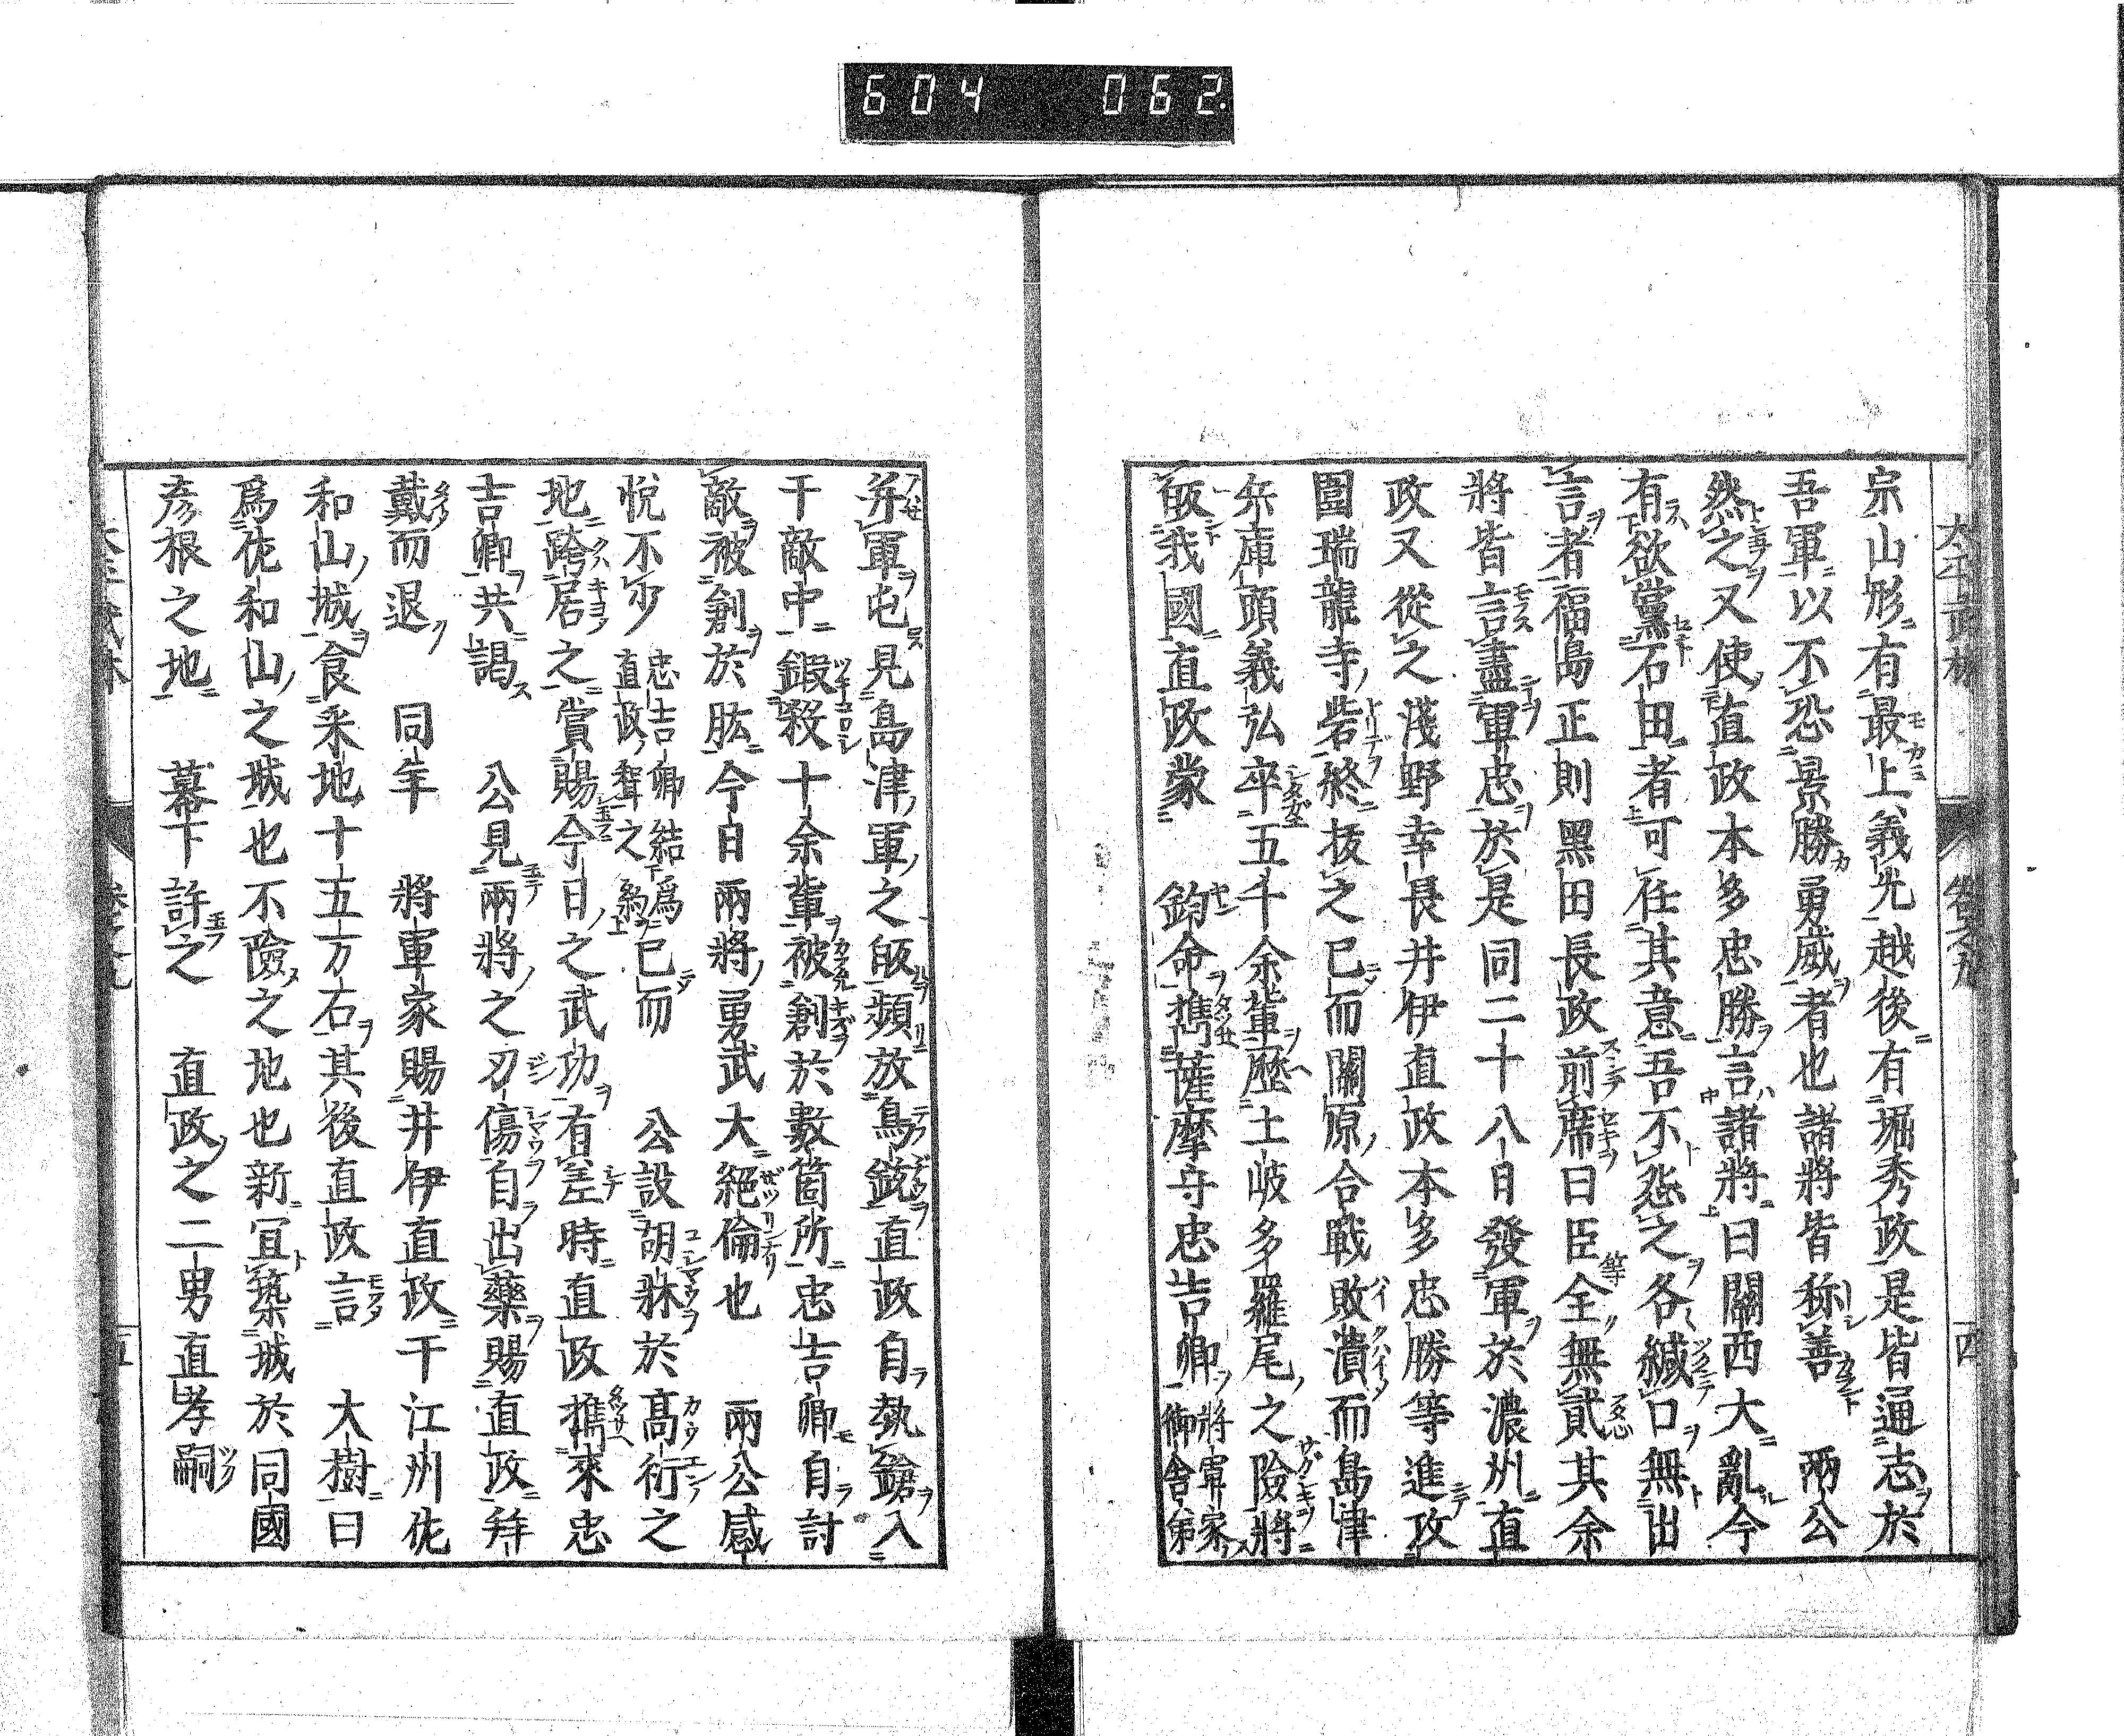 604 062
宗山形有最上義光越後有堀秀政是皆通志於
吾軍以不恐景勝勇威者也諸將皆称善 兩公
然之又使直政本多忠勝言諸將曰關西大亂今
有欲黨石田者可任其意吾不怨之各緘口無出
言者福島正則黑田長政前席曰臣等全無貳其余
將皆言盡軍忠於是同二十八日發軍於濃州直
政又從之淺野幸長井伊直政本多忠勝等進攻
圍瑞龍寺砦終拔之已而關原合戰敗潰而島津
兵庫頭義弘卒五千余輩歷土岐多羅尾之險將
皈我國直政蒙 鈞命携薩摩守忠吉卿將軍家御舍弟
并軍屯見島津軍之皈頻放鳥銃直政自執鎗入
于敵中鍛殺十余輩被創於數箇所忠吉卿自討
敵被創於肱今日兩將勇武大絕倫也 兩公感
悅不少忠吉卿結爲直政聟之約已而 公設胡牀於高衍之
地踞居之賞賜今日之武功有差時直政携來忠
吉卿共謁 公見兩將之刃傷自出藥賜直政拜
戴而退 同年 將軍家賜井伊直政于江州佐
和山城食釆地十五万石其後直政言 大樹曰
爲佐和山之城也不險之地也新宜築城於同國
彥根之地 幕下許之 直政之二男直孝嗣